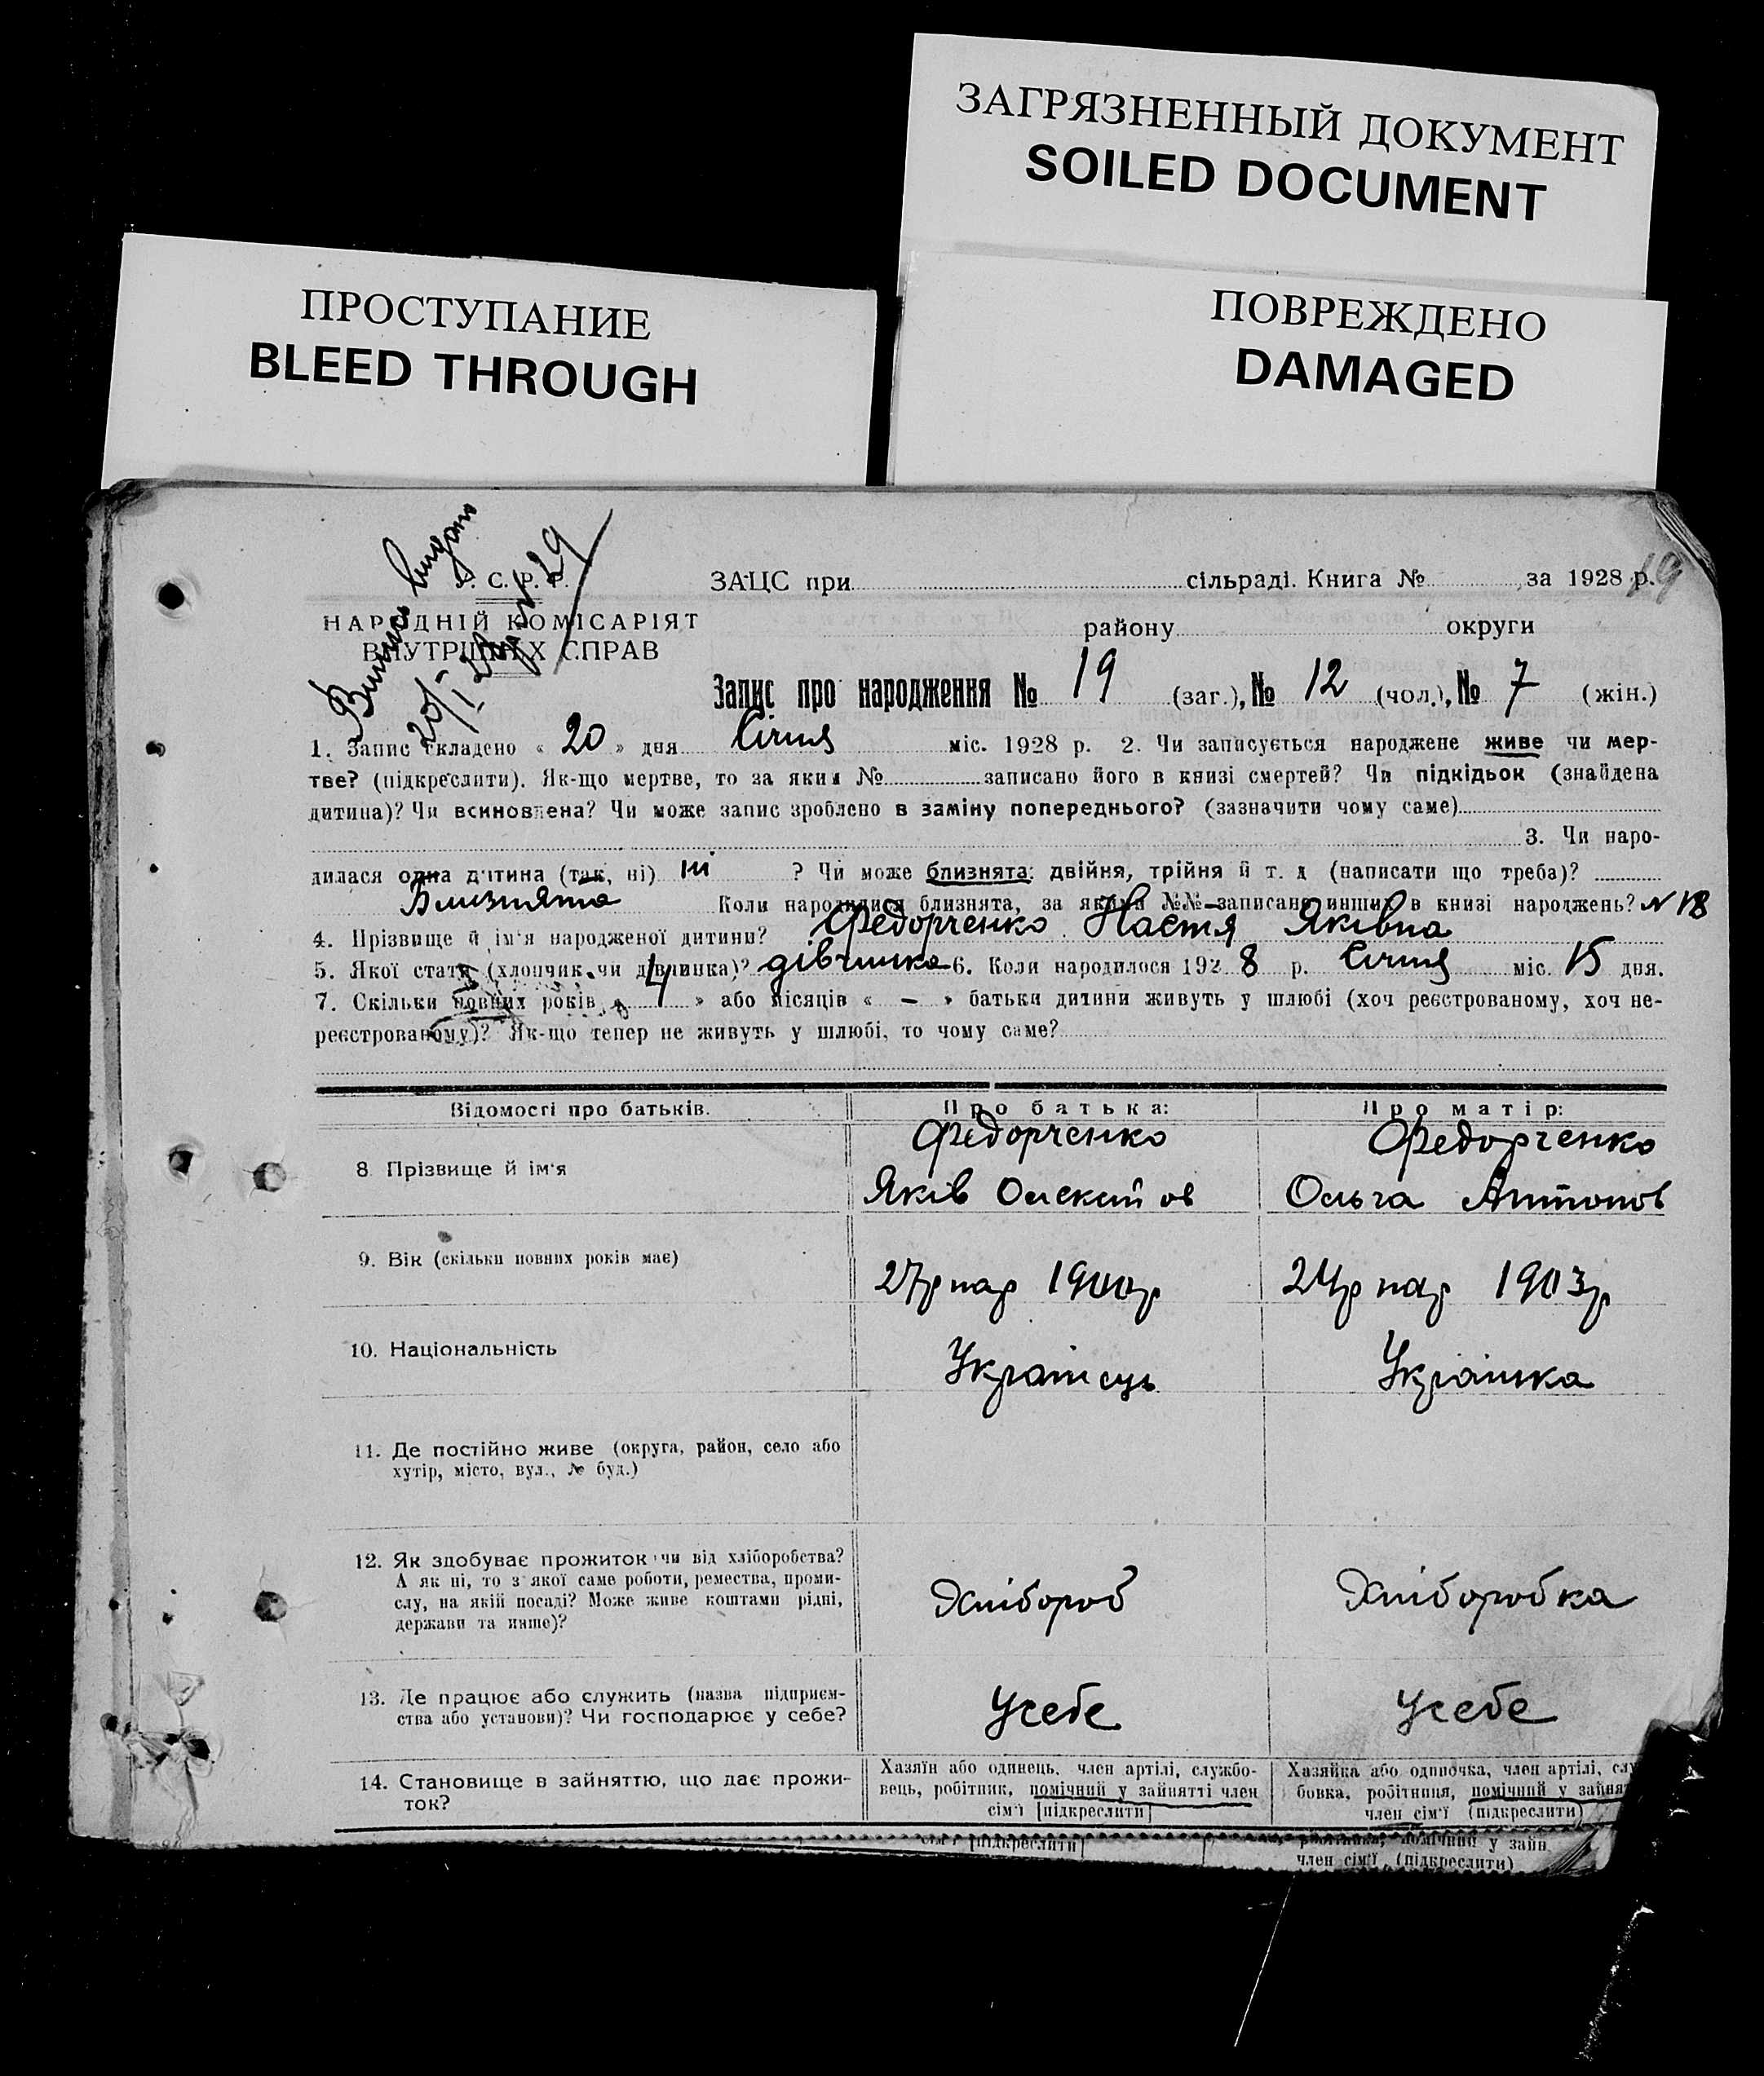 ЗАГРЯЗНЕННЫЙ ДОКУМЕНТ
SOILED DOCUMENT
ПРОСТУПАНИЕ
BLEED THROUGH
ПОВРЕЖДЕНО
DAMAGED
Випись видано
С. Р. Р. ЗАЦС при сільраді. Книга № за 1928 р. 19
НАРОДНІЙ КОМІСАРІЯТ
ВНУТРІШНІХ СПРАВ
району округи
Запис про народження № 19 (заг.), № 12 (чол.), № 7 (жін.)
1. Запис складено « 20 » дня Січня міс. 1928 р. 2. Чи записується народжене живе чи мер-
тве? (підкреслити). Як-що мертве, то за яким № записано його в книзі смертей? Чи підкідьок (знайдена
дитина)? Чи всиновлена? Чи може запис зроблено в заміну попереднього? (зазначити чому саме)
3. Чи наро-
дилася одна дитина (так, ні) ні ? Чи може близнята: двійня, трійня й т. д (написати що треба)?
Близнята Коли народилися близнята, за якими №№ записано инших в книзі народжень? № 18
4. Прізвище й ім'я народженої дитини? Федорченко Настя Яківна
5. Якої статі (хлопчик чи дівчинка)? дівчинка 6. Коли народилося 1928 р. Січня міс. 15 дня.
7. Скільки повних років « 4 » або місяців « — » батьки дитини живуть у шлюбі (хоч реєстрованому, хоч не-
реєстрованому)? Як-що тепер не живуть у шлюбі, то чому саме?
Відомості про батьків. Про батька: Про матір:
8. Прізвище й ім'я Федорченко Яків Федорченко
Ольга Антонов
9. Вік (скільки повних років має) 27р нар 1900р 24р нар 1903р
10. Національність Українець Українка
11. Де постійно живе (округа, район, село або
хутір, місто, вул., № буд.)
12. Як здобуває прожиток чи від хліборобства?
А як ні, то з якої саме роботи, ремества, проми-
слу, на якій посаді? Може живе коштами рідні,
держави та инше)?
Хлібороб Хліборобка
13. Де працює або служить (назва підприєм-
ства або установи)? Чи господарює у себе?
Усебе Усебе
14. Становище в зайняттю, що дає прожи-
ток?
Хазяїн або одинець, член артілі, службо-
вець, робітник, помічний у зайнятті член
сім'ї [підкреслити]
Хазяйка або одиночка, член артілі, слу
бовка, робітниця, помічний у зайнят
член сім'ї (підкреслити)
сім'ї [підкреслити]
робітниця, помічний у зайн
член сім'ї (підкреслити)